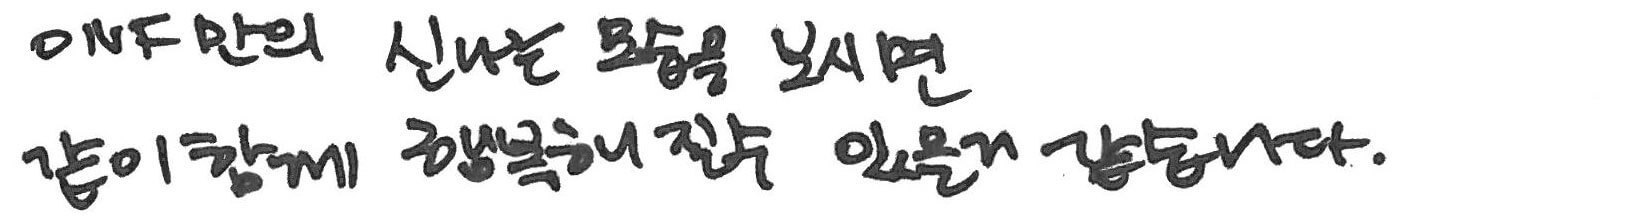 ONF만의 신나는 모습을 보시면
같이 함께 행복해 질수 있을거 같습니다.